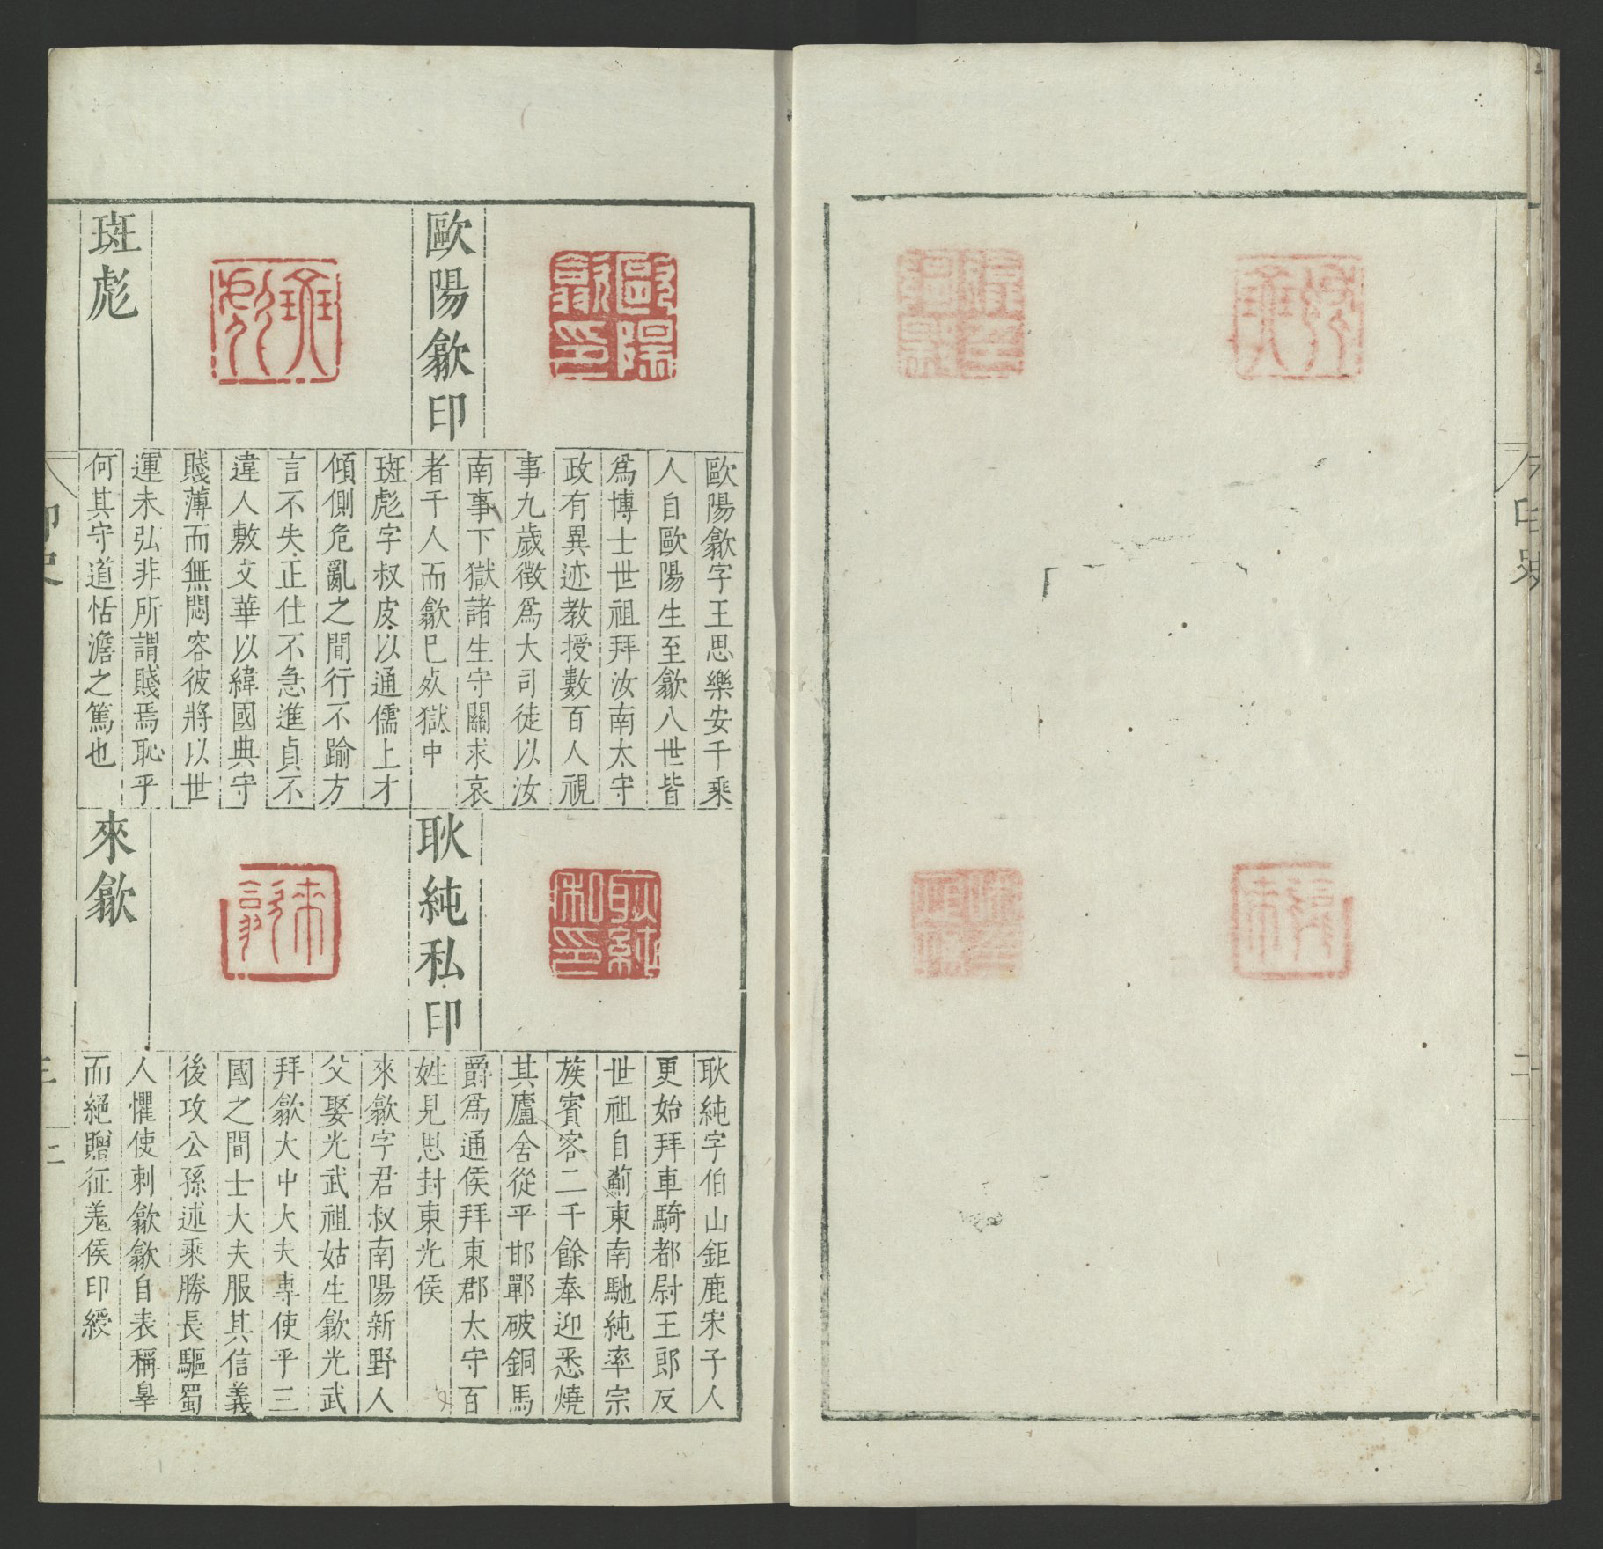 歐陽歙印
歐陽歙字王思樂安千乘
人自歐陽生至歙八世皆
爲博士世祖拜汝南太守
政有異迹教授數百人視
事九歲徵爲大司徒以汝
南事下獄諸生守闕求哀
者千人而歙已𣦸獄中
班彪
斑彪字叔皮以通儒上才
傾側危亂之間行不踰方
言不失正仕不急進貞不
違人敷文華以緯國典守
賤薄而無悶容彼將以世
運未弘非所謂賤焉恥乎
何其守道恬澹之篤也
耿純私印
耿純字伯山鉅鹿宋子人
更始拜車騎都尉王郎反
世祖自薊東南馳純率宗
族賓客二千餘奉迎悉燒
其廬舍從平邯鄲破銅馬
爵爲通侯拜東郡太守百
姓見思封東光侯
來歙
來歙字君叔南陽新野人
父娶光武祖姑生歙光武
拜歙大中大夫專使乎三
國之間士大夫服其信義
後攻公孫述乘勝長驅蜀
人懼使刺歙歙自表稱辠
而絕贈征羗侯印綬
印史
三